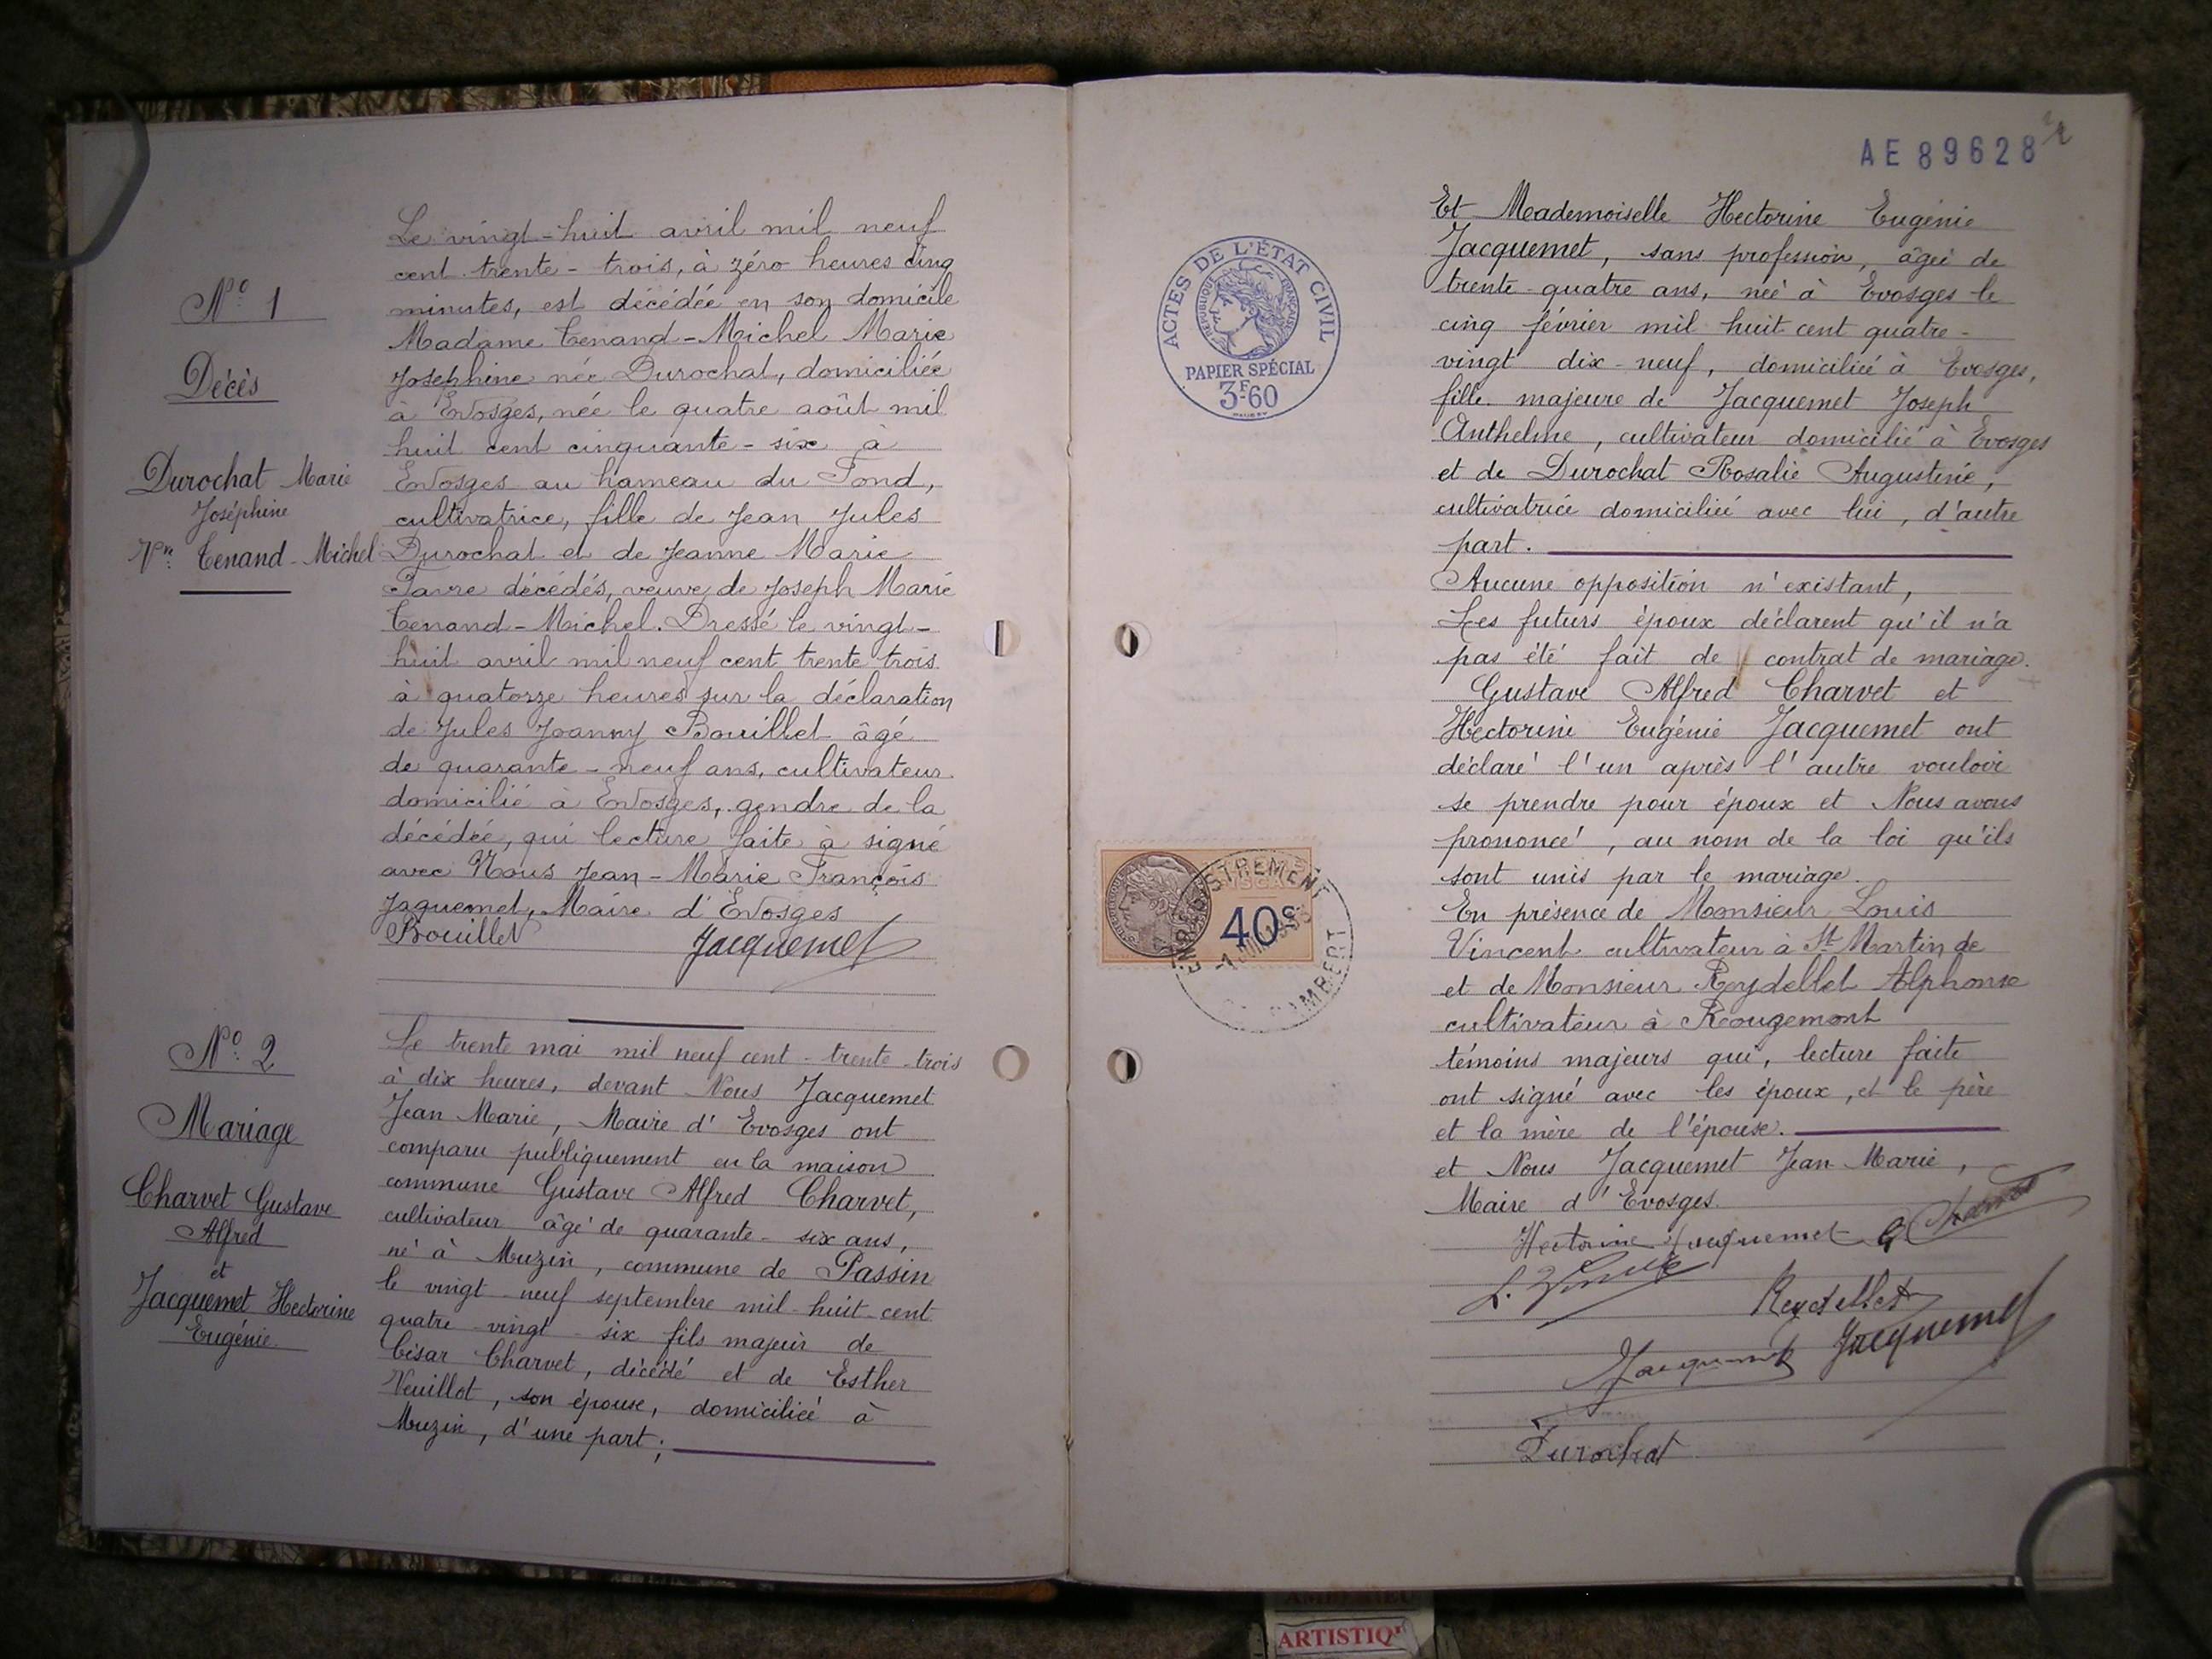 N° 1
Décès
Durochat Marie
Joséphine
Vve Tenand-Michel
Le vingt-huit avril mil neuf
cent trente-trois, à zéro heures cinq
minutes, est décédée en son domicile
Madame Tenand-Michel Marie
Josephine née Durochat, domiciliée
à Evosges, née le quatre août mil
huit cent cinquante-six à
Evosges au hameau du Fond,
cultivatrice, fille de Jean Jules
Durochat et de Jeanne Marie
Favre décédés, veuve de Joseph Marie
Tenand-Michel. Dressé le vingt-
huit avril mil neuf cent trente trois
à quatorze heures sur la déclaration
de Jules Joanny Bouillet âgé
de quarante-neuf ans, cultivateur
domicilié à Evosges, gendre de la
décédée, qui lecture faite à signé
avec Nous Jean-Marie François
Jaquemet, Maire d'Evosges
Bouillet Jacquemet
N° 2
Mariage
Charvet Gustave
Alfred
et
Jacquemet Hectorine
Eugénie
Le trente mai mil neuf cent-trente-trois
à dix heures, devant Nous Jacquemet
Jean Marie, Maire d'Evosges ont
comparu publiquement en la maison
commune Gustave Alfred Charvet,
cultivateur âgé de quarante-six ans,
né à Muzin, commune de Passin
le vingt-neuf septembre mil-huit-cent
quatre-vingt-six fils majeur de
César Charvet, décédé et de Esther
Veuillot, son épouse, domiciliée à
Muzin, d'une part;
AE 89628
ACTES DE L'ÉTAT CIVIL
RÉPUBLIQUE FRANÇAISE
PAPIER SPÉCIAL
3F60
ENREGISTREMENT
40c
RAMBERT
Et Mademoiselle Hectorine Eugénie
Jacquemet, sans profession, âgée de
trente-quatre ans, née à Evosges le
cinq février mil huit cent quatre-
vingt dix-neuf, domiciliée à Evosges,
fille majeure de Jacquemet Joseph
Anthelme, cultivateur domicilié à Evosges
et de Durochat Rosalie Augustine,
cultivatrice domiciliée avec lui, d'autre
part.
Aucune opposition n'existant,
Les futurs époux déclarent qu'il n'a
pas été fait de contrat de mariage.
Gustave Alfred Charvet et
Hectorine Eugénie Jacquemet ont
déclaré l'un après l'autre vouloir
se prendre pour époux et Nous avons
prononcé, au nom de la loi qu'ils
sont unis par le mariage.
En présence de Monsieur Louis
Vincent cultivateur à St Martin de
et de Monsieur Reydellet Alphonse
cultivateur à Rougemont
témoins majeurs qui, lecture faite
ont signé avec les époux, et le père
et la mère de l'épouse.
et Nous Jacquemet Jean Marie,
Maire d'Evosges.
Hectorine Jacquemet G Charvet
Reydellet
Jacquemet Jacquemet
Durochat
ARTISTIQ